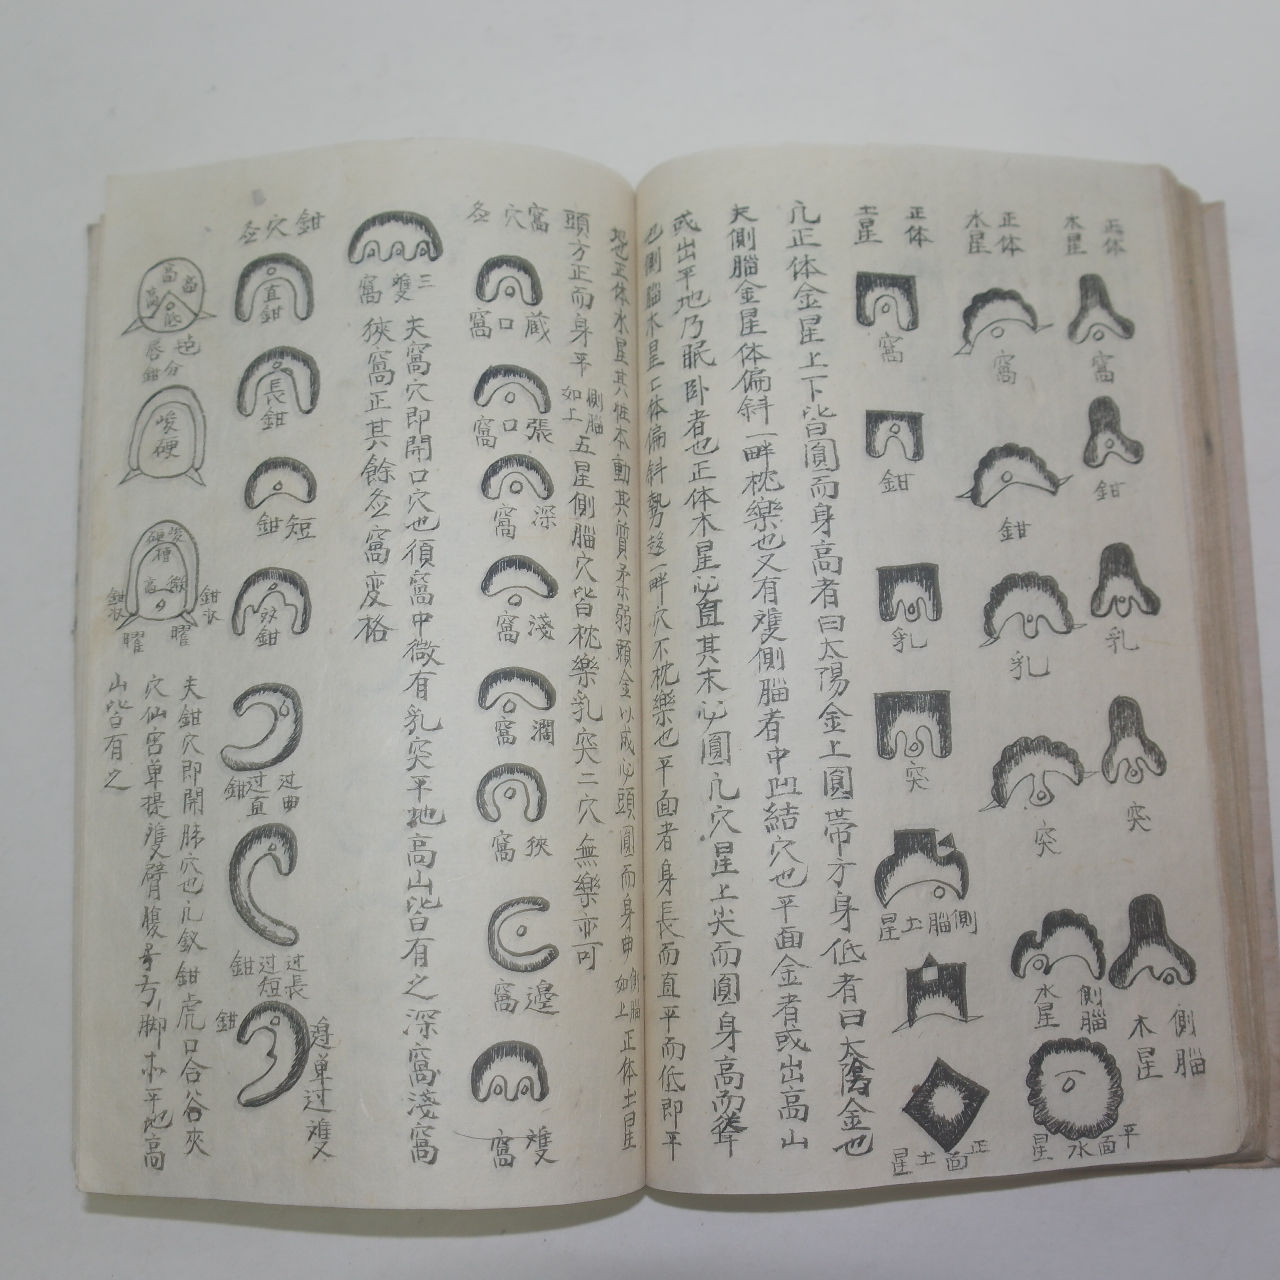 正体
木星
窩
鉗
乳
突
側腦
木星
正体
水星
窩
鉗
乳
突
側腦
水星
平面水星
正体
土星
窩
鉗
乳
突
側腦土星
正面土星
凡正体金星上下皆圓而身高者曰太陽金上圓帯方身低者曰太陰金也
夫側腦金星体偏斜一畔枕樂也又有雙側腦者中凹結穴也平面金者或出高山
或出平地乃眠卧者也正体木星必直其末必圓凡穴星上尖而圓身高而聳
也側腦木星上体偏斜勢趍一畔穴不枕樂也平面者身長而直平而低即平
地也正体水星其性本動其質柔弱頼金以成必頭圓而身曲側腦如上正体土星
頭方正而身平側腦如上五星側腦穴皆枕樂乳突二穴無樂亦可
窩穴圖
蔵口窩
張口窩
深窩
淺窩
濶窩
狹窩
邊窩
雙窩
三雙窩
夫窩穴即開口穴也須窩中微有乳突平地高山皆有之深窩淺窩
狹窩正其餘窩変格
鉗穴
直鉗
長鉗
短鉗
鉗
过曲
过直鉗
过長
过短鉗
邉单过雙
鉗
高
高
高
低
唇鉗
峻硬
高
鉗
鉗
曜
曜
夫鉗穴即開脉穴也凡釵鉗虎口合谷夾
穴仙宮单提雙臂腹弓脚亦平地高
山皆有之